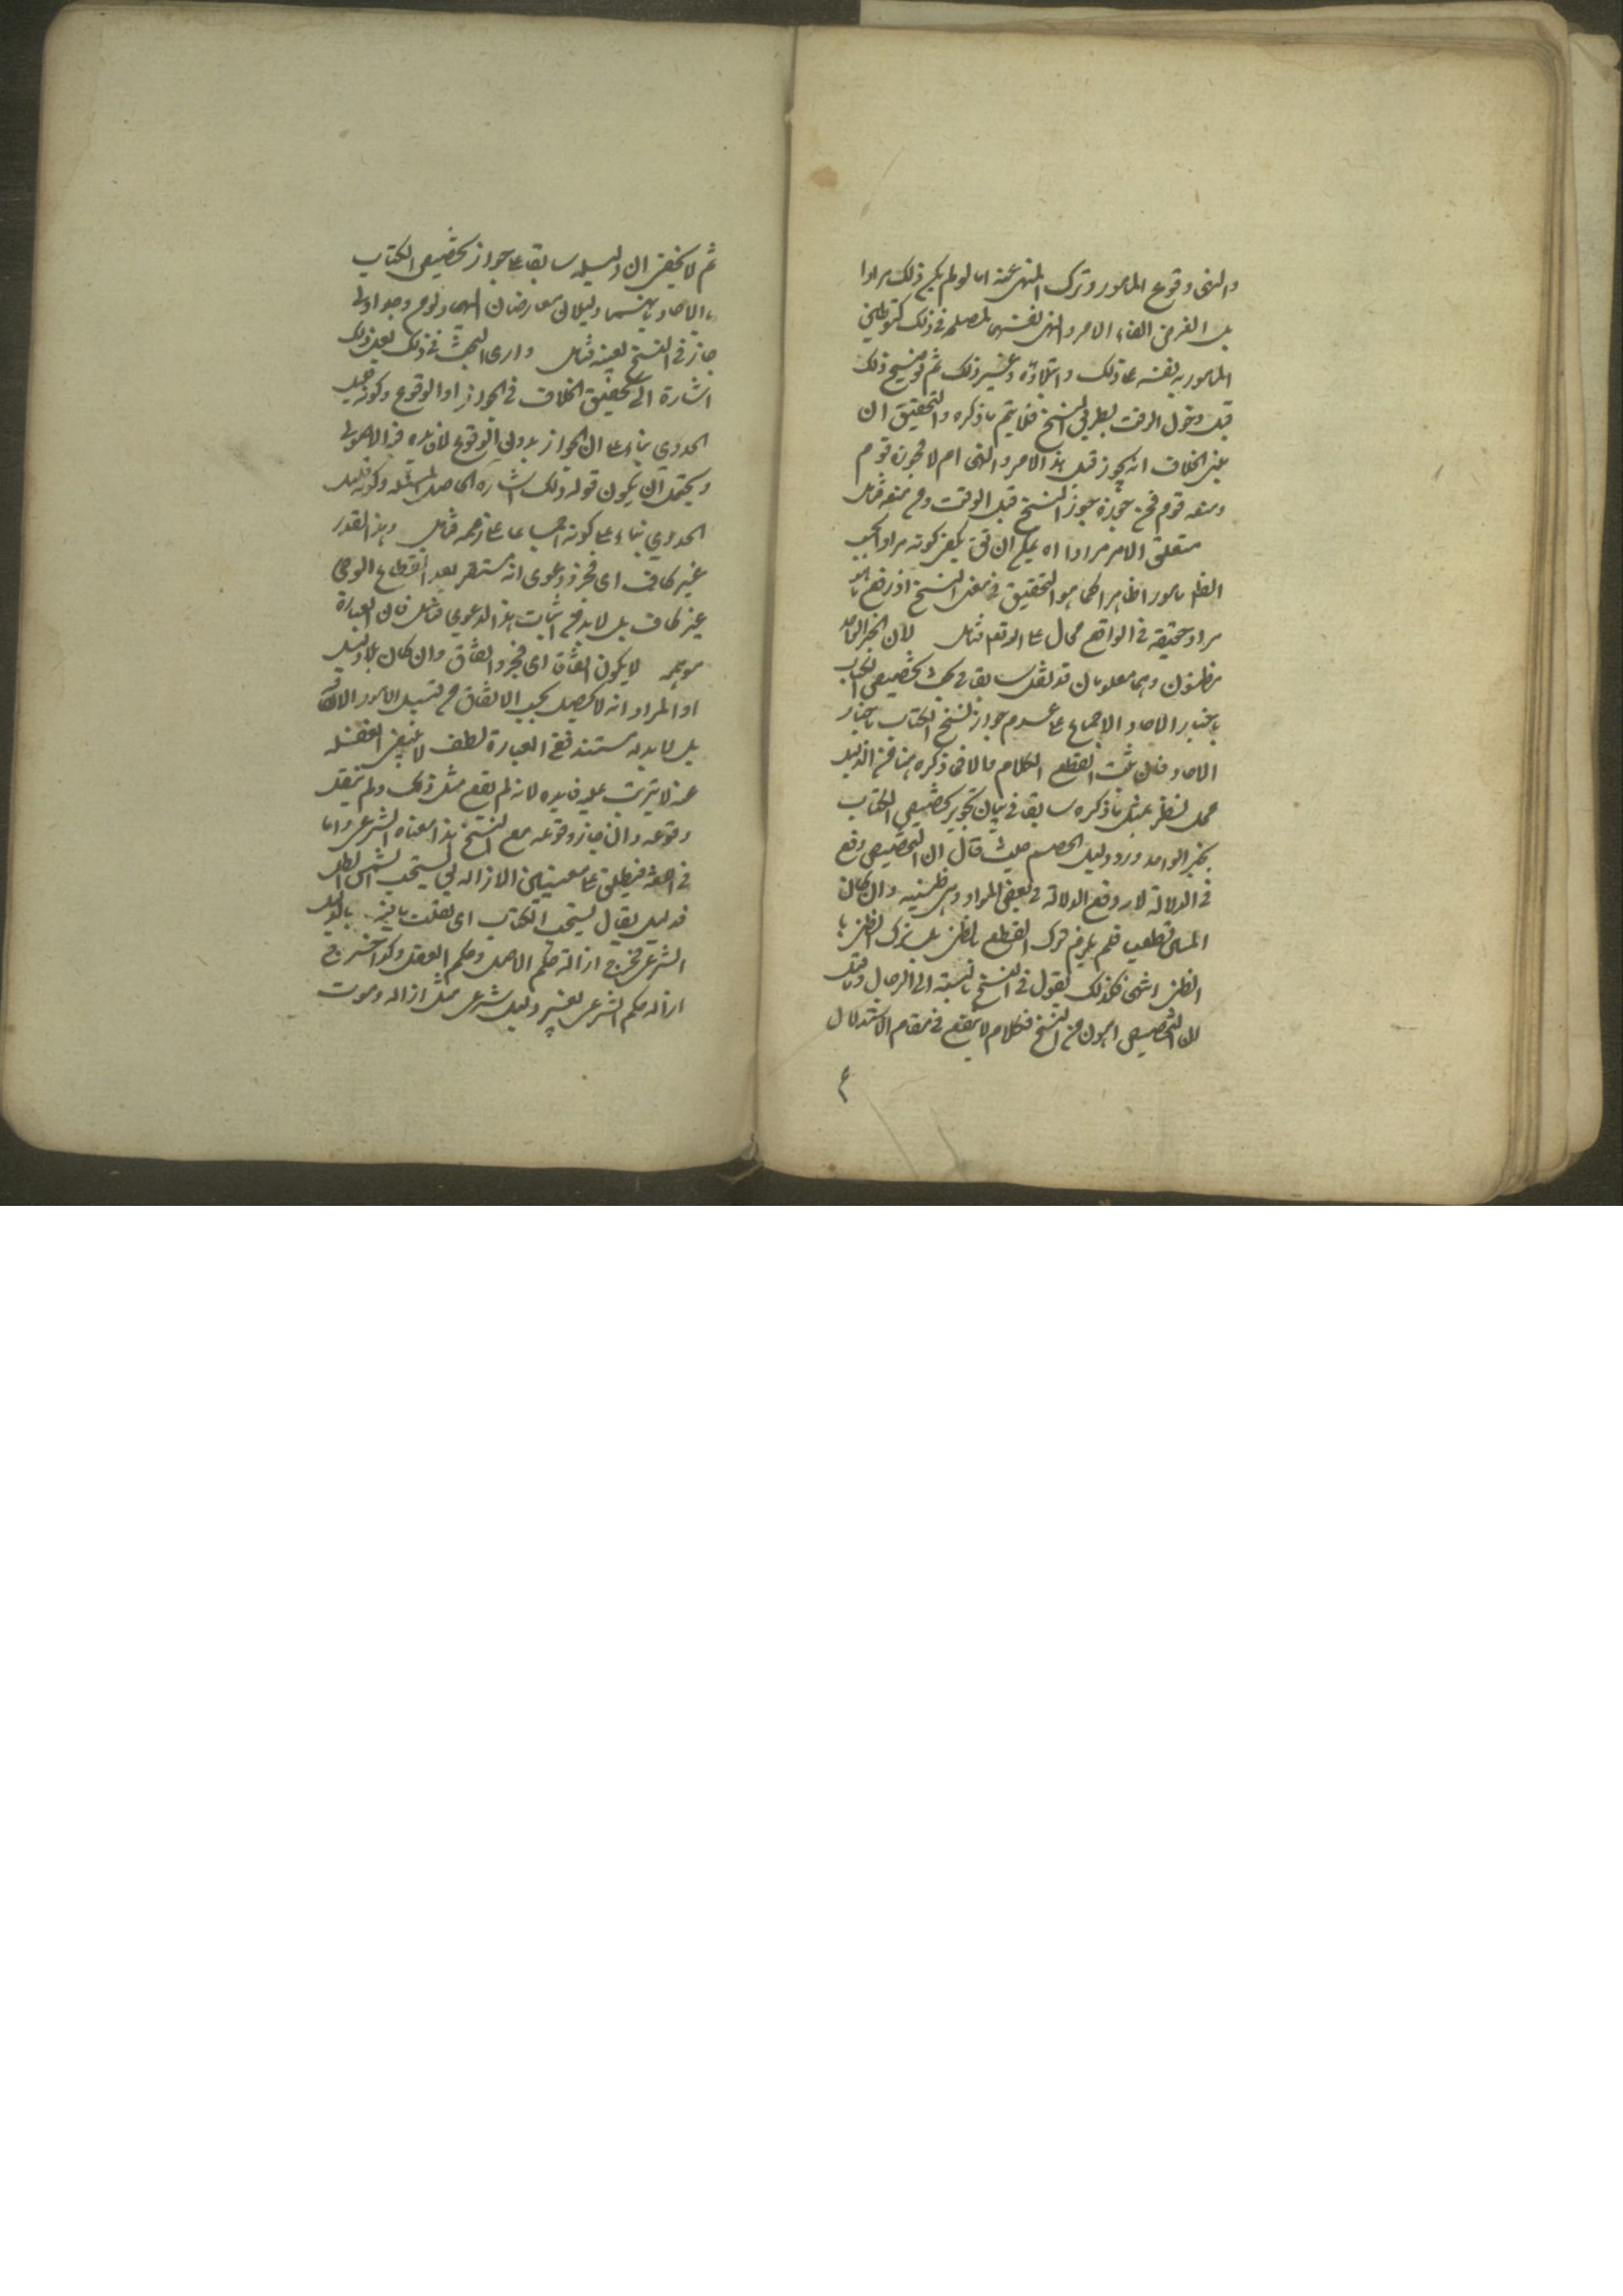 والنهى وقوع المامور وترك المنهى عنه اما لو لم يكن ذلك مرادا
بل الغرض القاء الامر والنهى نفسهما لمصلحة فى ذلك كتوطين
المامور به نفسه على ذلك وابتلاؤه وغير ذلك ثم نسخ ذلك
قبل دخول الوقت بطريق النسخ فلا يتم ما ذكره والتحقيق ان
مبنى الخلاف انه يجوز قبل هذا الامر والنهى ام لا فجوزه قوم
ومنعه قوم فمن جوزه جوز النسخ قبل الوقت ومن منعه فتامل
متعلق الامر مرادا اه يمكن ان يق يكفى كونه مرادا بحسب
الظاهر مامورا ظاهرا كما هو التحقيق فى معنى النسخ اذ رفع ما هو
مراد حقيقة فى الواقع محال على الله تعالى فتامل لان الخبر الواحد
مظنون وهما معلومان قد نقل سابقا فى بحث تخصيص الكتاب
باخبار الاحاد الاجماع على عدم جواز نسخ الكتاب باخبار
الاحاد فان ثبت انقطع الكلام والا فما ذكره هنا من الدليل
محل نظر بمثل ما ذكره سابقا فى بيان تجويز تخصيص الكتاب
بخبر الواحد ورد دليل الخصم حيث قال ان التخصيص وقع
فى الدلالة لانه دفع الدلالة فى بعض الموارد وهى ظنية وان كان
المتن قطعيا فلم يلزم ترك القطع بالظن بل ترك الظن با
لظن انتهى فكذلك نقول فى النسخ بالنسبة الى الزمان وما قيل
ان التخصيص اهون من النسخ فكلام لا ينفع فى مقام الاستدلال
ثم لا يخفى ان دليله سابقا على جواز تخصيص الكتاب
بالاحاد بانهما دليلان تعارضا
جاز فى النسخ بعينه فتامل وارى البحث فى ذلك
اشارة الى تحقيق الخلاف فى الجواز او الوقوع وكونه قليل
الجدوى بناء على ان الجواز بدون الوقوع لا فايده فيه للاصولى
ويحتمل ان يكون قوله ذلك اشارة الى اصل المسئله وكونه قليل
الجدوى بناء على كونه اجماعيا على زعمه فتامل وهذا القدر
غير كاف اى مجرد دعوى انه مستقر بعد انقطاع الوحى
غير كاف بل لا بد من اثبات هذا الدعوى فتامل فان العبارة
موهمه لا يكون اتفاقا اى مجرد اتفاق وان كان بلا دليل
او المراد انه لا يحصل بحسب الاتفاق من قبيل الامور الاتفاقية
بل لا بد له مستند ففى العبارة لطف لا ينبغى الغفلة
عنه لا يترتب عليه فايده لانه لم يقع مثل ذلك ولم ينقل
وقوعه وان جاز وقوعه مع النسخ هذا معناه الشرعى واما
فى اللغة فيطلق على معنيين الازاله نسخت الشمس الظل
يقال نسخت الكتاب اى نقلت ما فيه بالدليل
الشرعى فخرج ازالة حكم الاصل وحكم العقل وكذا خرج
ازاله حكم الشرعى بغير دليل شرعى مثل ازاله وموت